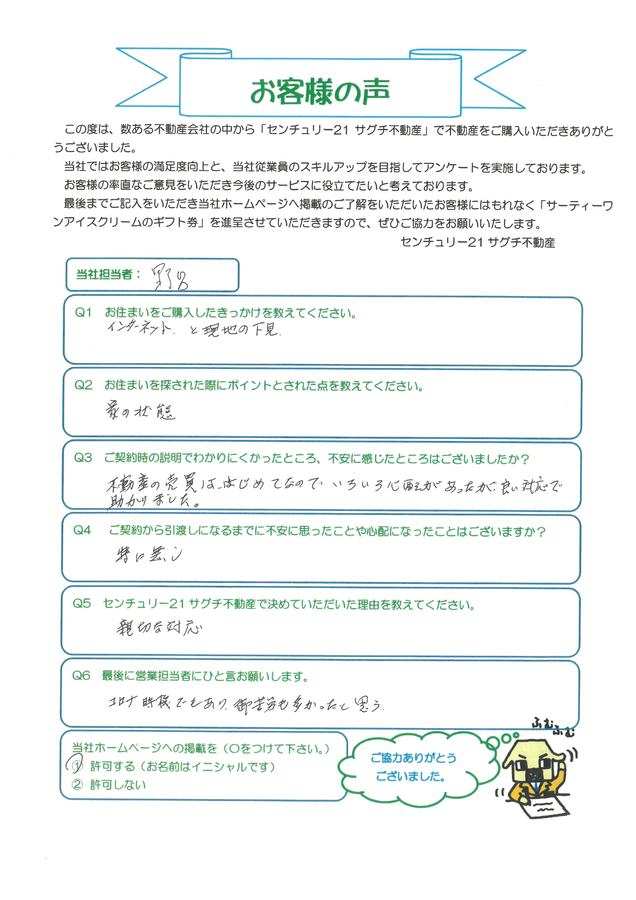 お客様の声
この度は、数ある不動産会社の中から「センチュリー21 サグチ不動産」で不動産をご購入いただきありがと
うございました。
当社ではお客様の満足度向上と、当社従業員のスキルアップを目指してアンケートを実施しております。
お客様の率直なご意見をいただき今後のサービスに役立てたいと考えております。
最後までご記入をいただき当社ホームページへ掲載のご了解をいただいたお客様にはもれなく「サーティーワ
ンアイスクリームのギフト券」を進呈させていただきますので、ぜひご協力をお願いいたします。
センチュリー21 サグチ不動産
当社担当者：
Q1 お住まいをご購入したきっかけを教えてください。
インターネット と現地の下見
Q2 お住まいを探された際にポイントとされた点を教えてください。
の状態
Q3 ご契約時の説明でわかりにくかったところ、不安に感じたところはございましたか？
不動産の売買は、はじめてなので いろいろ心配があったが、良い対応で
助かりました。
Q4 ご契約から引渡しになるまでに不安に思ったことや心配になったことはございますか？
特に無し
Q5 センチュリー21 サグチ不動産で決めていただいた理由を教えてください。
親切な対応
Q6 最後に営業担当者にひと言お願いします。
コロナ時様でもあり、御苦労も多かったと思う
ふむふむ
当社ホームページへの掲載を（〇をつけて下さい。）
① 許可する（お名前はイニシャルです）
② 許可しない
ご協力ありがとう
ございました。